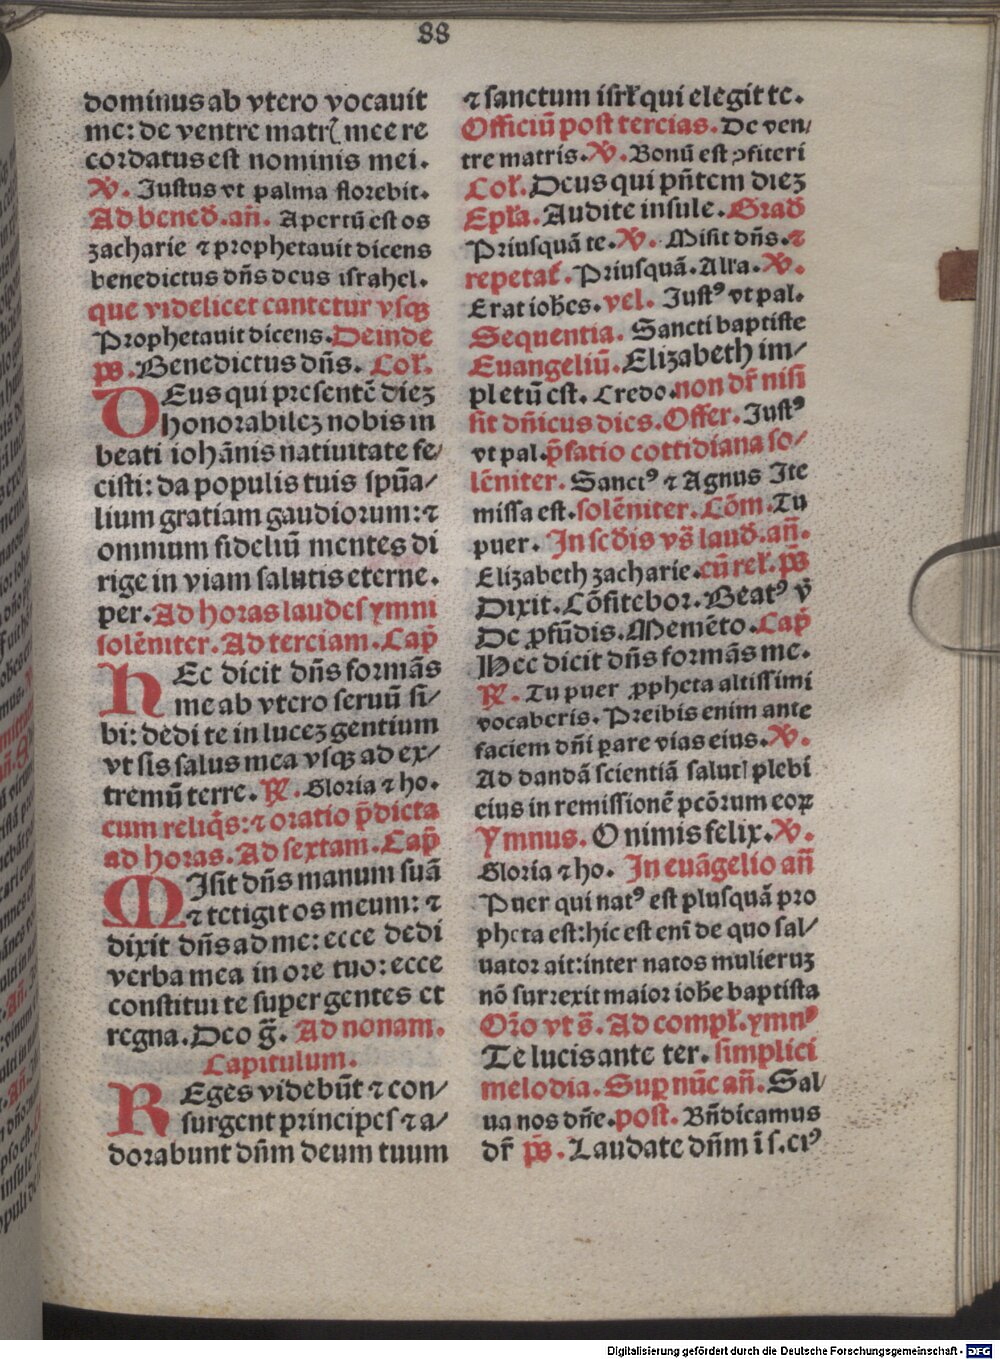 88
dominus ab vtero vocauit
me: de ventre matrꝭ mee re
cordatus est nominis mei.
℣. Justus vt palma florebit.
Ad bened̄. an̄. Apertū est os
zacharie ⁊ prophetauit dicens
benedictus dn̄s deus israhel.
que videlicet cantetur vsqꝫ
Prophetauit dicens. Deinde
pſ̄. Benedictus dn̄s. Col̄.
DEus qui presentē dieꝫ
honorabileꝫ nobis in
beati iohānis natiuitate fe/
cisti: da populis tuis spūa/
lium gratiam gaudiorum: ⁊
omnium fideliū mentes di
rige in viam salutis eterne.
per. Ad horas laudes ymni
solēniter. Ad terciam. Cap̄
HEc dicit dn̄s formās
me ab vtero seruū si/
bi: dedi te in luceꝫ gentium
vt sis salus mea vsqꝫ ad ex/
tremū terre. ℟. Gloria ⁊ ho.
cum reliq̄s: ⁊ oratio p̄dicta
ad horas. Ad sextam. Cap̄
MIsit dn̄s manum suā
⁊ tetigit os meum: ⁊
dixit dn̄s ad me: ecce dedi
verba mea in ore tuo: ecce
constitui te super gentes et
regna. Deo ḡ. Ad nonam.
Capitulum.
REges videbūt ⁊ con/
surgent principes ⁊ a/
dorabunt dn̄m deum tuum
⁊ sanctum isrl̄ qui elegit te.
Officiū post tercias. De ven/
tre matris. ℣. Bonū est ꝯfiteri
Col̄. Deus qui pn̄tem dieꝫ
Epl̄a. Audite insule. Grad̄
Priusquā te. ℣. Misit dn̄s. ⁊
repetat̄. Priusquā. All'a. ℣.
Erat ioh̄es. vel. Justꝰ vt pal.
Sequentia. Sancti baptiste
Euangeliū. Elizabeth im/
pletū est. Credo. non dr̄ nisi
sit dn̄icus dies. Offer. Justꝰ
vt pal. p̄fatio cottidiana so/
lēniter. Sanctꝰ ⁊ Agnus Ite
missa est. solēniter. Cōm. Tu
puer. In scd̄is vs̄ laud̄. an̄.
Elizabeth zacharie. cū rel̄. pſ̄
Dixit. Cōfitebor. Beatꝰ v̄
De ꝓfūdis. Memēto. Cap̄
Hec dicit dn̄s formās me.
℟. Tu puer ꝓpheta altissimi
vocaberis. Preibis enim ante
faciem dn̄i parare vias eius. ℣.
Ad dandā scientiā salutꝭ plebi
eius in remissionē pcōrum eoꝝ
Ymnus. O nimis felix. ℣.
Gloria ⁊ ho. In euāgelio an̄
Puer qui natꝰ est plusquā pro
pheta est: hic est eni̅ de quo sal/
uator ait: inter natos mulieruꝫ
nō surrexit maior ioh̄e baptista
Or̄o vt s̄. Ad compl̄. ymnꝰ
Te lucis ante ter. simplici
melodia. Suꝑ nūc an̄. Sal/
ua nos dn̄e. post. Bn̄dicamus
dr̄ pſ̄. Laudate dn̄m i s. eiꝰ
Digitalisierung gefördert durch die Deutsche Forschungsgemeinschaft - DFG